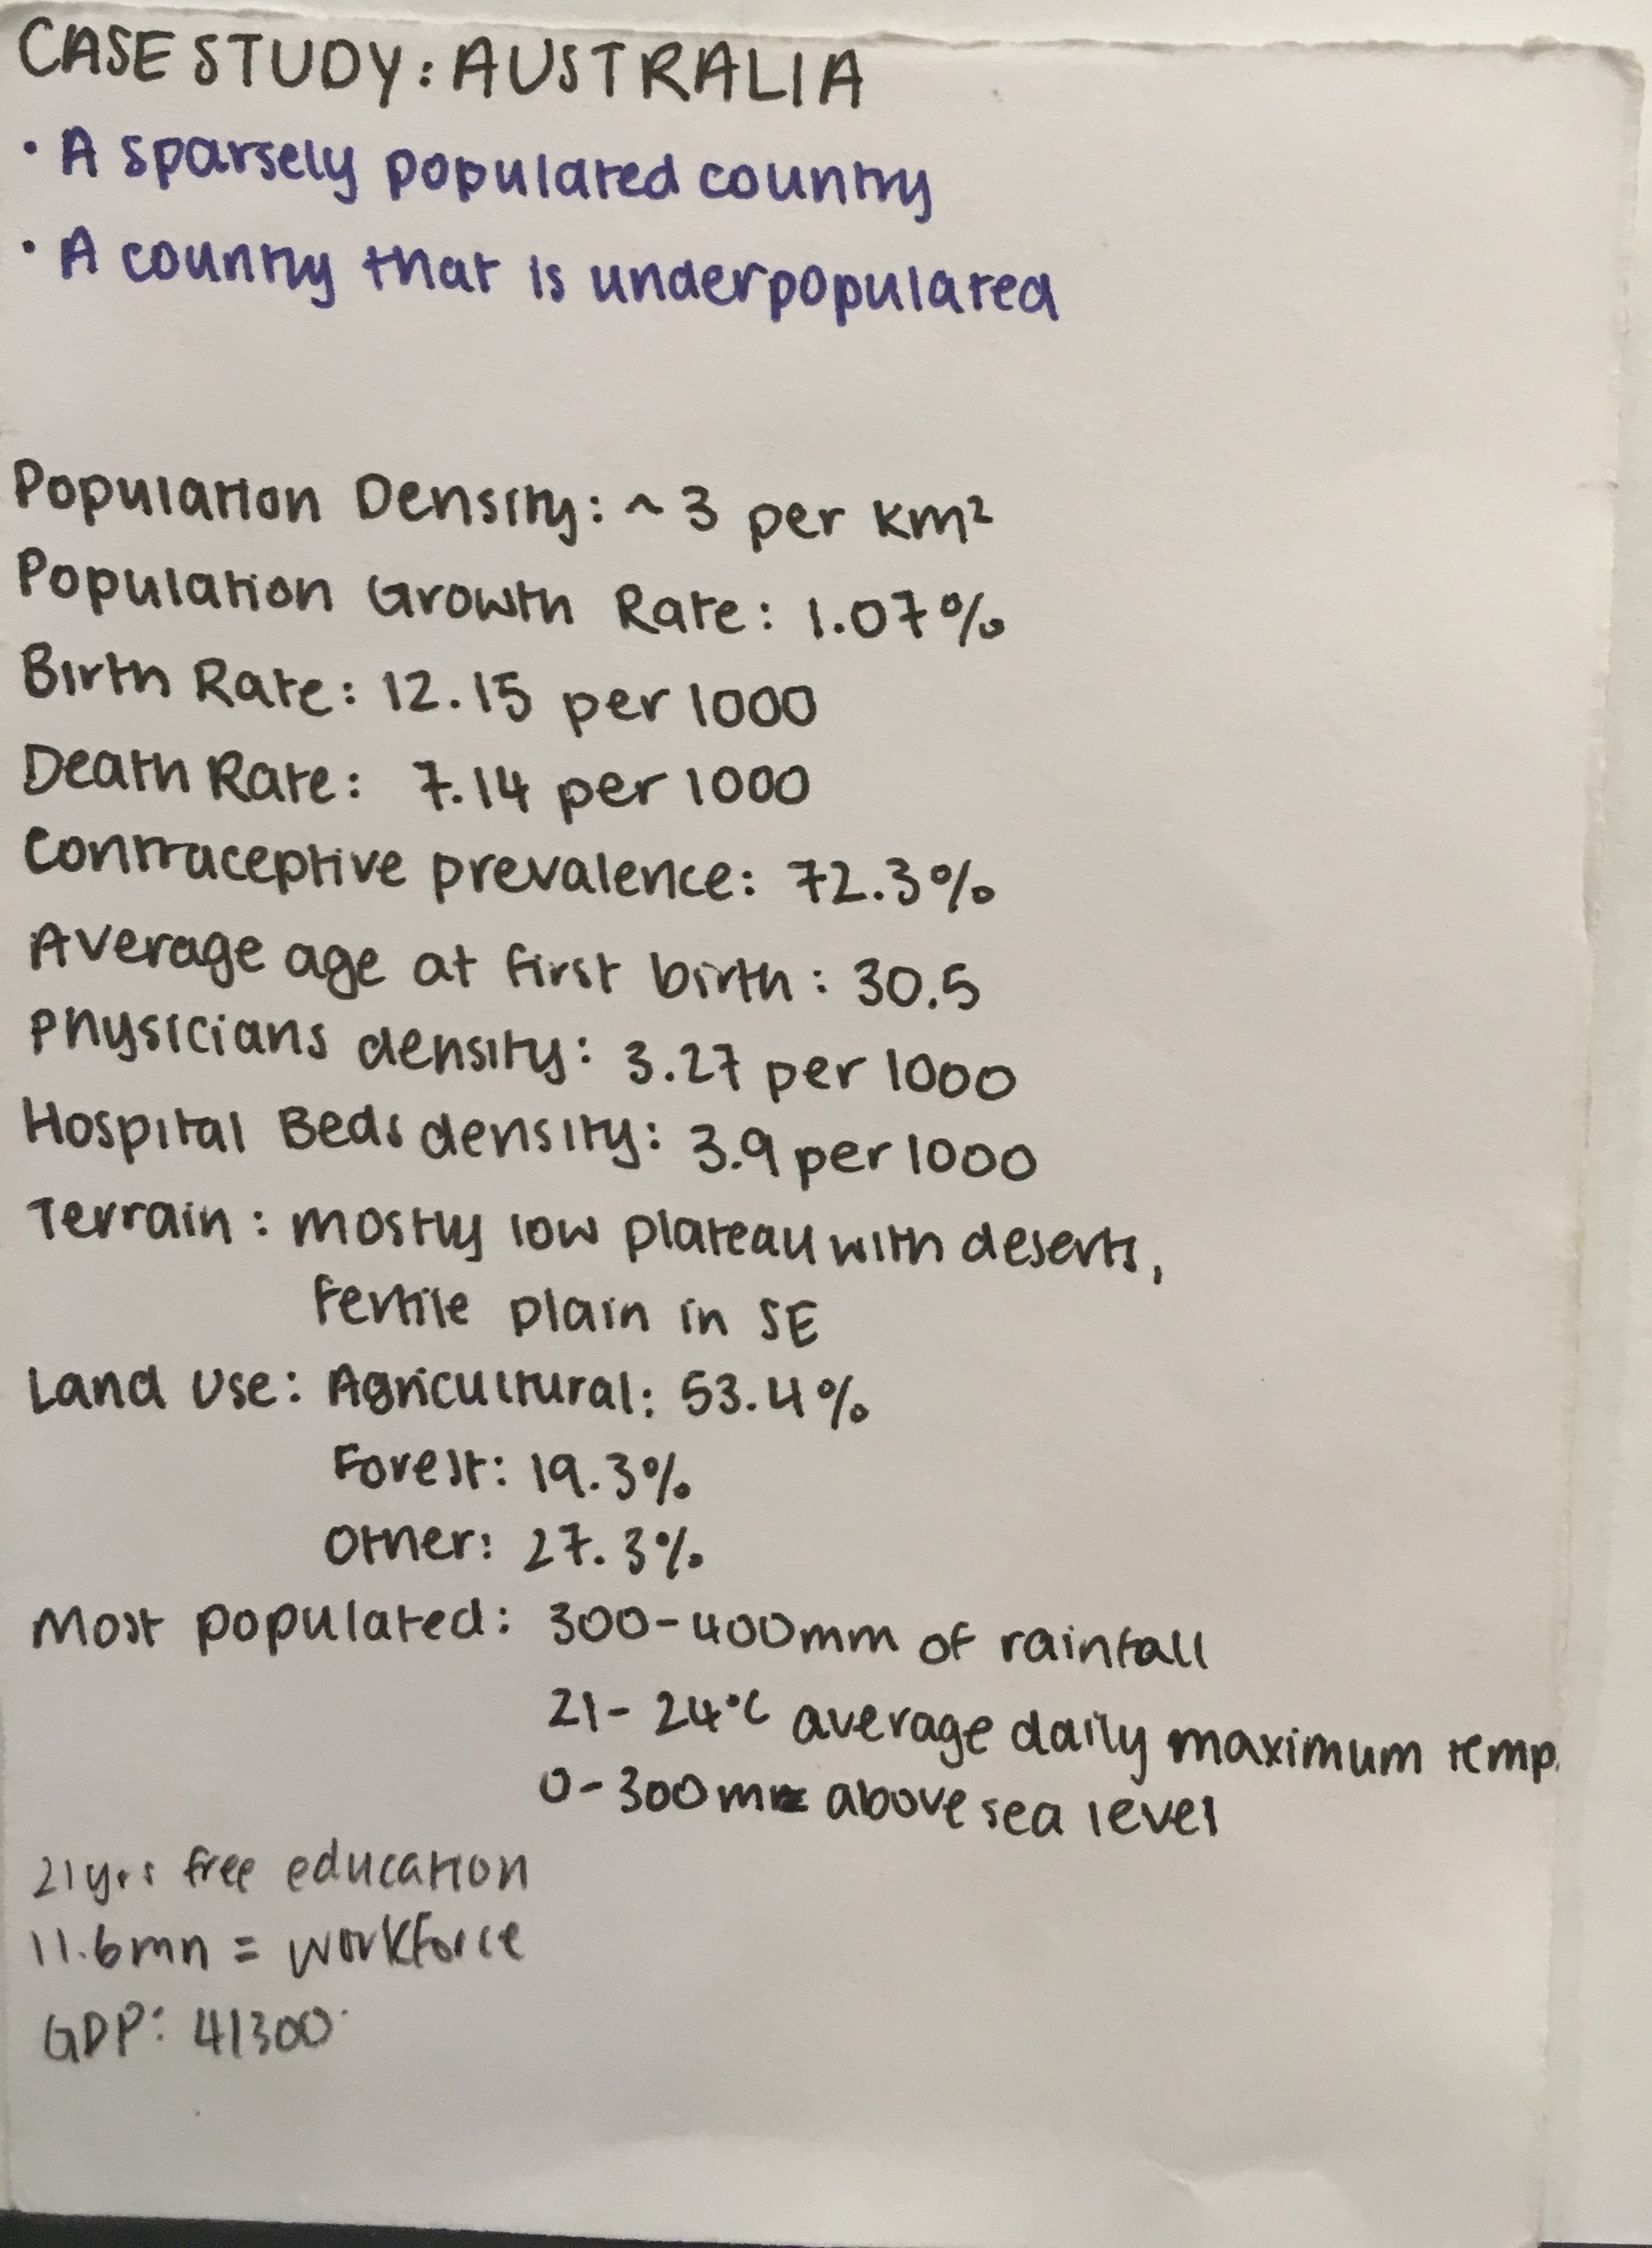 CASE STUDY: AUSTRALIA
• A sparsely populated country
• A country that is underpopulated
Population Density: ~3 per km²
Population Growth Rate: 1.07%
Birth Rate: 12.15 per 1000
Death Rate: 7.14 per 1000
Contraceptive prevalence: 72.3%
Average age at first birth: 30.5
Physicians density: 3.27 per 1000
Hospital Beds density: 3.9 per 1000
Terrain: mostly low plateau with deserts,
fertile plain in SE
Land Use: Agricultural: 53.4%
Forest: 19.3%
Other: 27.3%
Most populated: 300-400mm of rainfall
21-24°C average daily maximum temp.
0-300m above sea level
21yrs free education
11.6mn = workforce
GDP: 41300